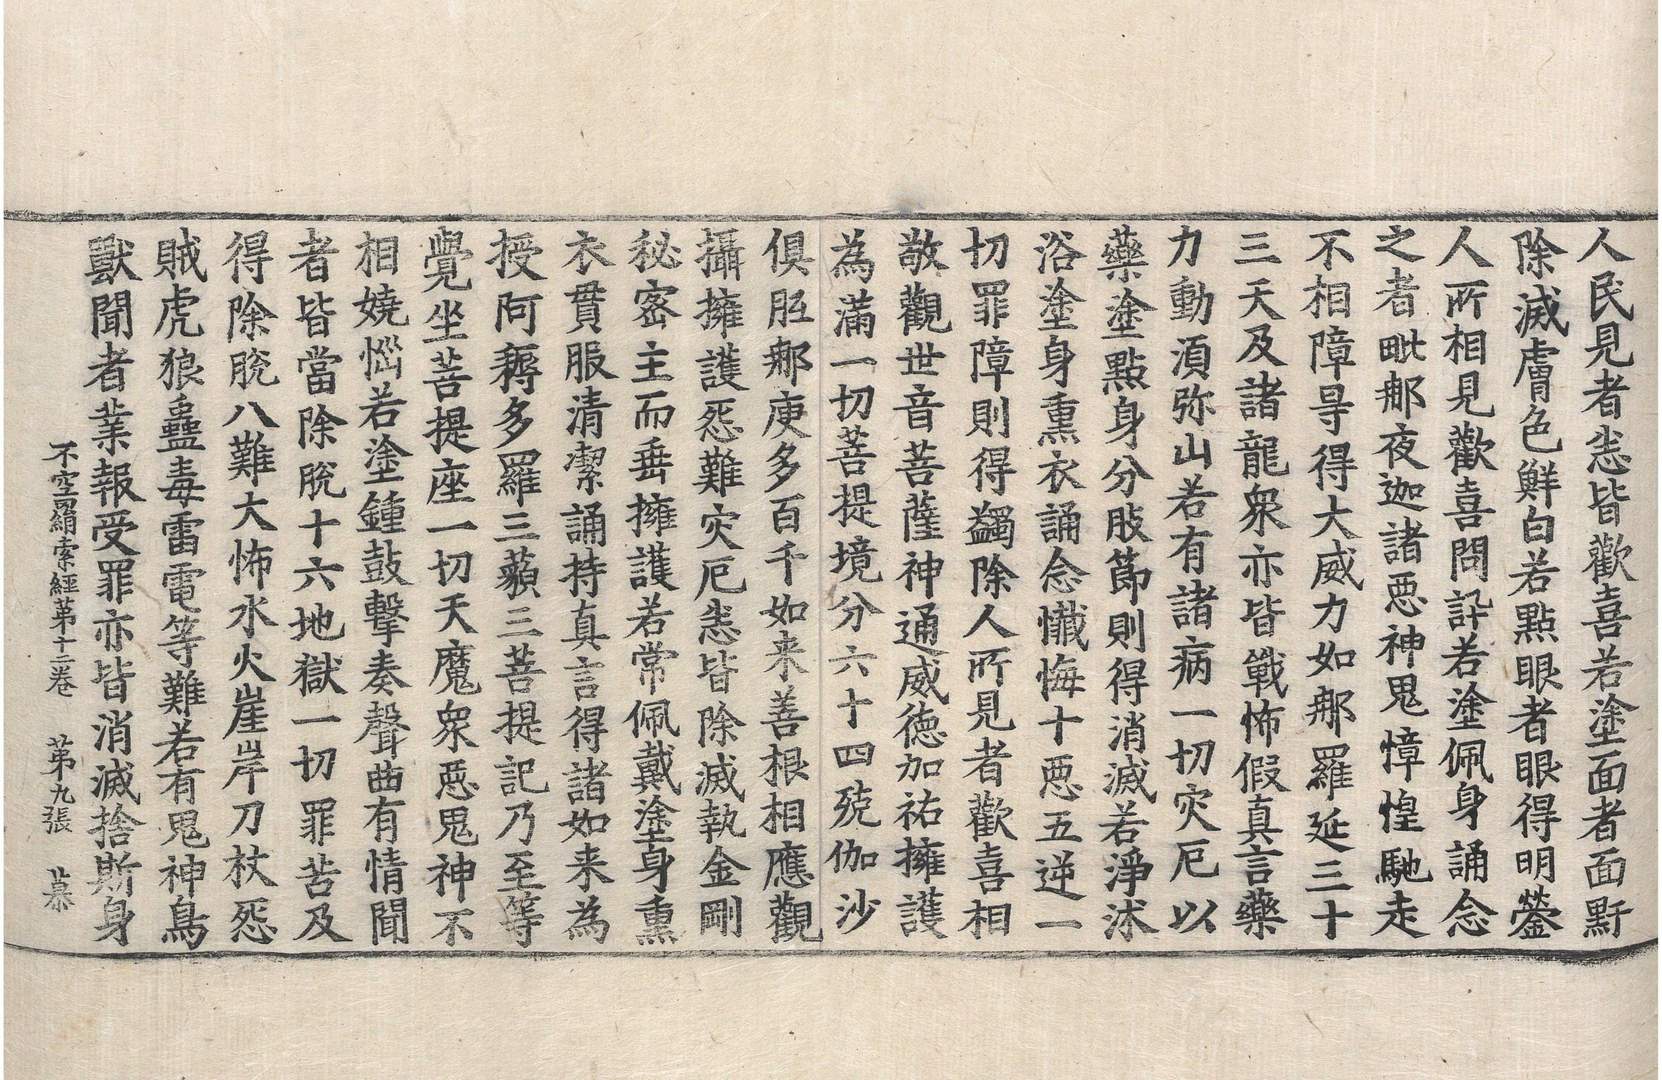 人民見者恙皆歡喜若塗面者面䵟
除滅膚色鮮白若點眼者眼得明鎣
人所相見歡喜問訶若塗佩身誦念
之者毗那夜迦諸惡神鬼慞惶馳走
不相障㝵得大威力如那羅延三十
三天及諸龍衆亦皆戰怖假真言藥
力動湏弥山若有諸病一切灾厄以
藥塗點身分肢節則得消滅若淨沐
浴塗身熏衣誦念懺悔十惡五逆一
切罪障則得蠲除人所見者歡喜相
敬觀世音菩薩神通威德加祐擁護
為滿一切菩提境分六十四殑伽沙
俱胝那庾多百千如来善根相應觀
攝擁護惡難灾厄恙皆除滅執金剛
秘密主而垂擁護若常佩戴塗身熏
衣貫服清潔誦持真言得諸如来為
授阿耨多羅三藐三菩提記乃至等
覺坐菩提座一切天魔衆惡鬼神不
相嬈惱若塗鍾鼓擊奏聲曲有情聞
者皆當除脫十六地獄一切罪苦及
得除脫八難大怖水火崖岸刀杖怨
賊虎狼蠱毒雷電等難若有鬼神鳥
獸聞者業報受罪亦皆消滅捨斯身
不空罥索經苐十二卷 苐九張 慕